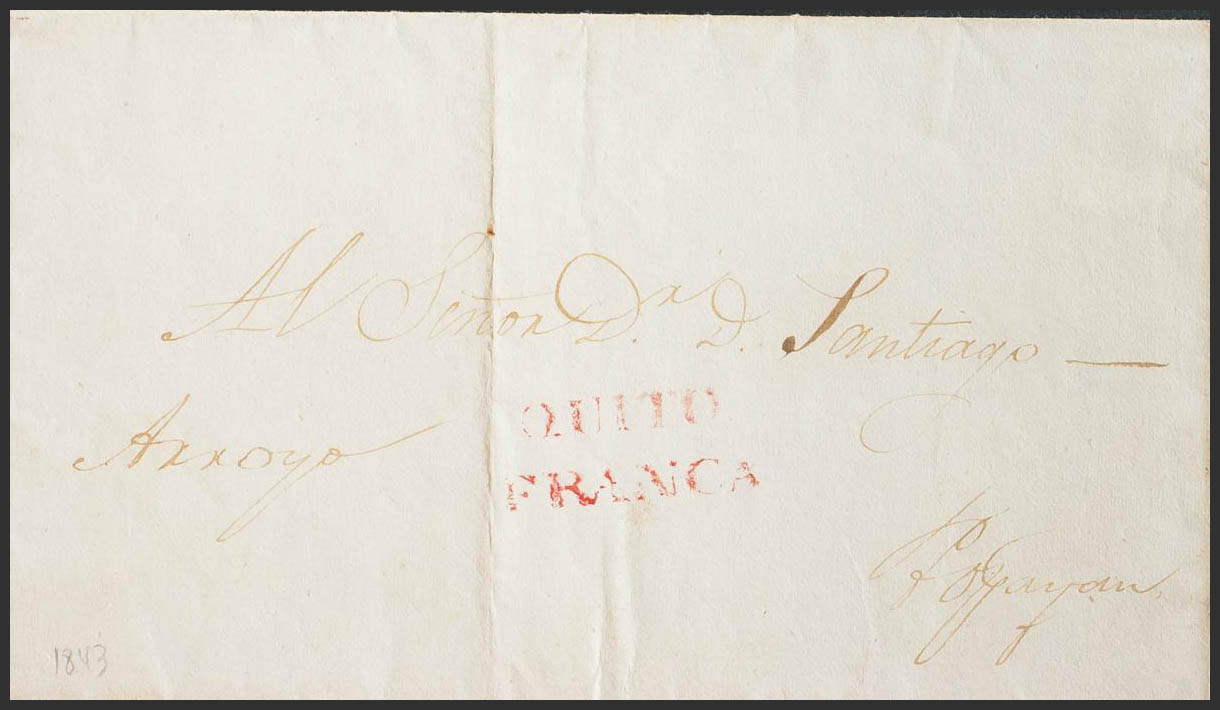 Al Señor Dr. D. Santiago —
Arroyo
QUITO
FRANCA
Popayan
1843